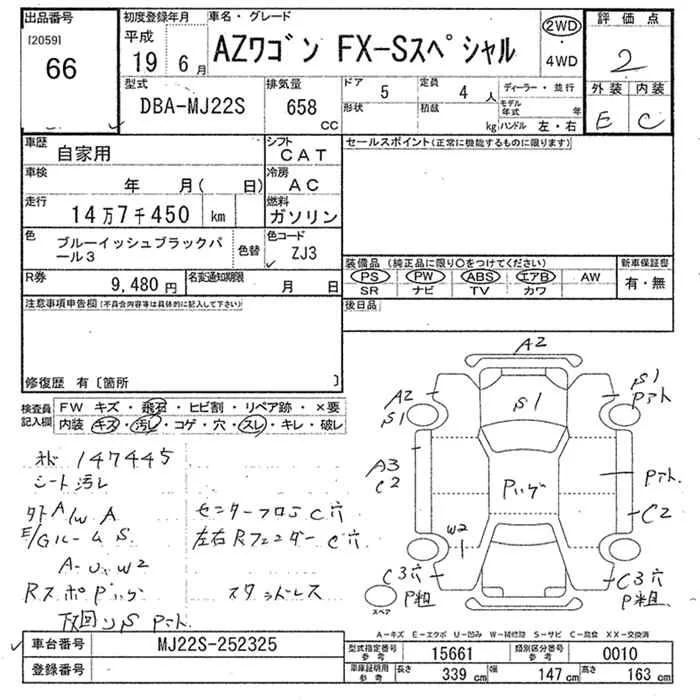 出品番号
[2059]
66
初度登録年月
平成
19 6月
車名・グレード
AZワゴン FX-Sスペシャル
2WD
・
4WD
評価点
2
外装 内装
E C
型式
DBA-MJ22S
排気量
658
CC
ドア 5
定員 4 人
形状
積載 kg
ディーラー・並行
モデル年式 年
ハンドル 左・右
車歴
自家用
シフト
CAT
車検
年 月( 日)
冷房
AC
走行
14万7千450 km
燃料
ガソリン
色
ブルーイッシュブラックパール3
色替
色コード
ZJ3
R券
9,480 円
名変通知期限
月 日
注意事項申告欄(不具合内容等は具体的に記入して下さい)
修復歴 有〔箇所 〕
セールスポイント(正常に機能するものに限ります)
装備品(純正品に限り○をつけてください)
新車保証書
PS PW ABS エアB AW
有・無
SR ナビ TV カワ
後日品
検査員記入欄
FW キズ・飛石・ヒビ割・リペア跡・×要
内装 キズ・汚レ・コゲ・穴・スレ・キレ・破レ
147445
シート汚レ
A/W A
センターフロS C穴
E/Gルーム S
左右Rフェンダー C穴
A-U、W2
Rスポ Pハゲ
スタッドレス
下回リS Pマト
A2
A2
S1
S1
S1
Pマト
A3
C2
Pハゲ
Pマト
C2
W2
C3穴
P粗
C3穴
P粗
スペア
A-キズ E-エクボ U-凹み W-補修跡 S-サビ C-腐食 XX-交換済
車台番号
MJ22S-252325
型式指定番号 参考
15661
類別区分番号 参考
0010
登録番号
車庫証明用 参考
長さ 339 cm
幅 147 cm
高さ 163 cm